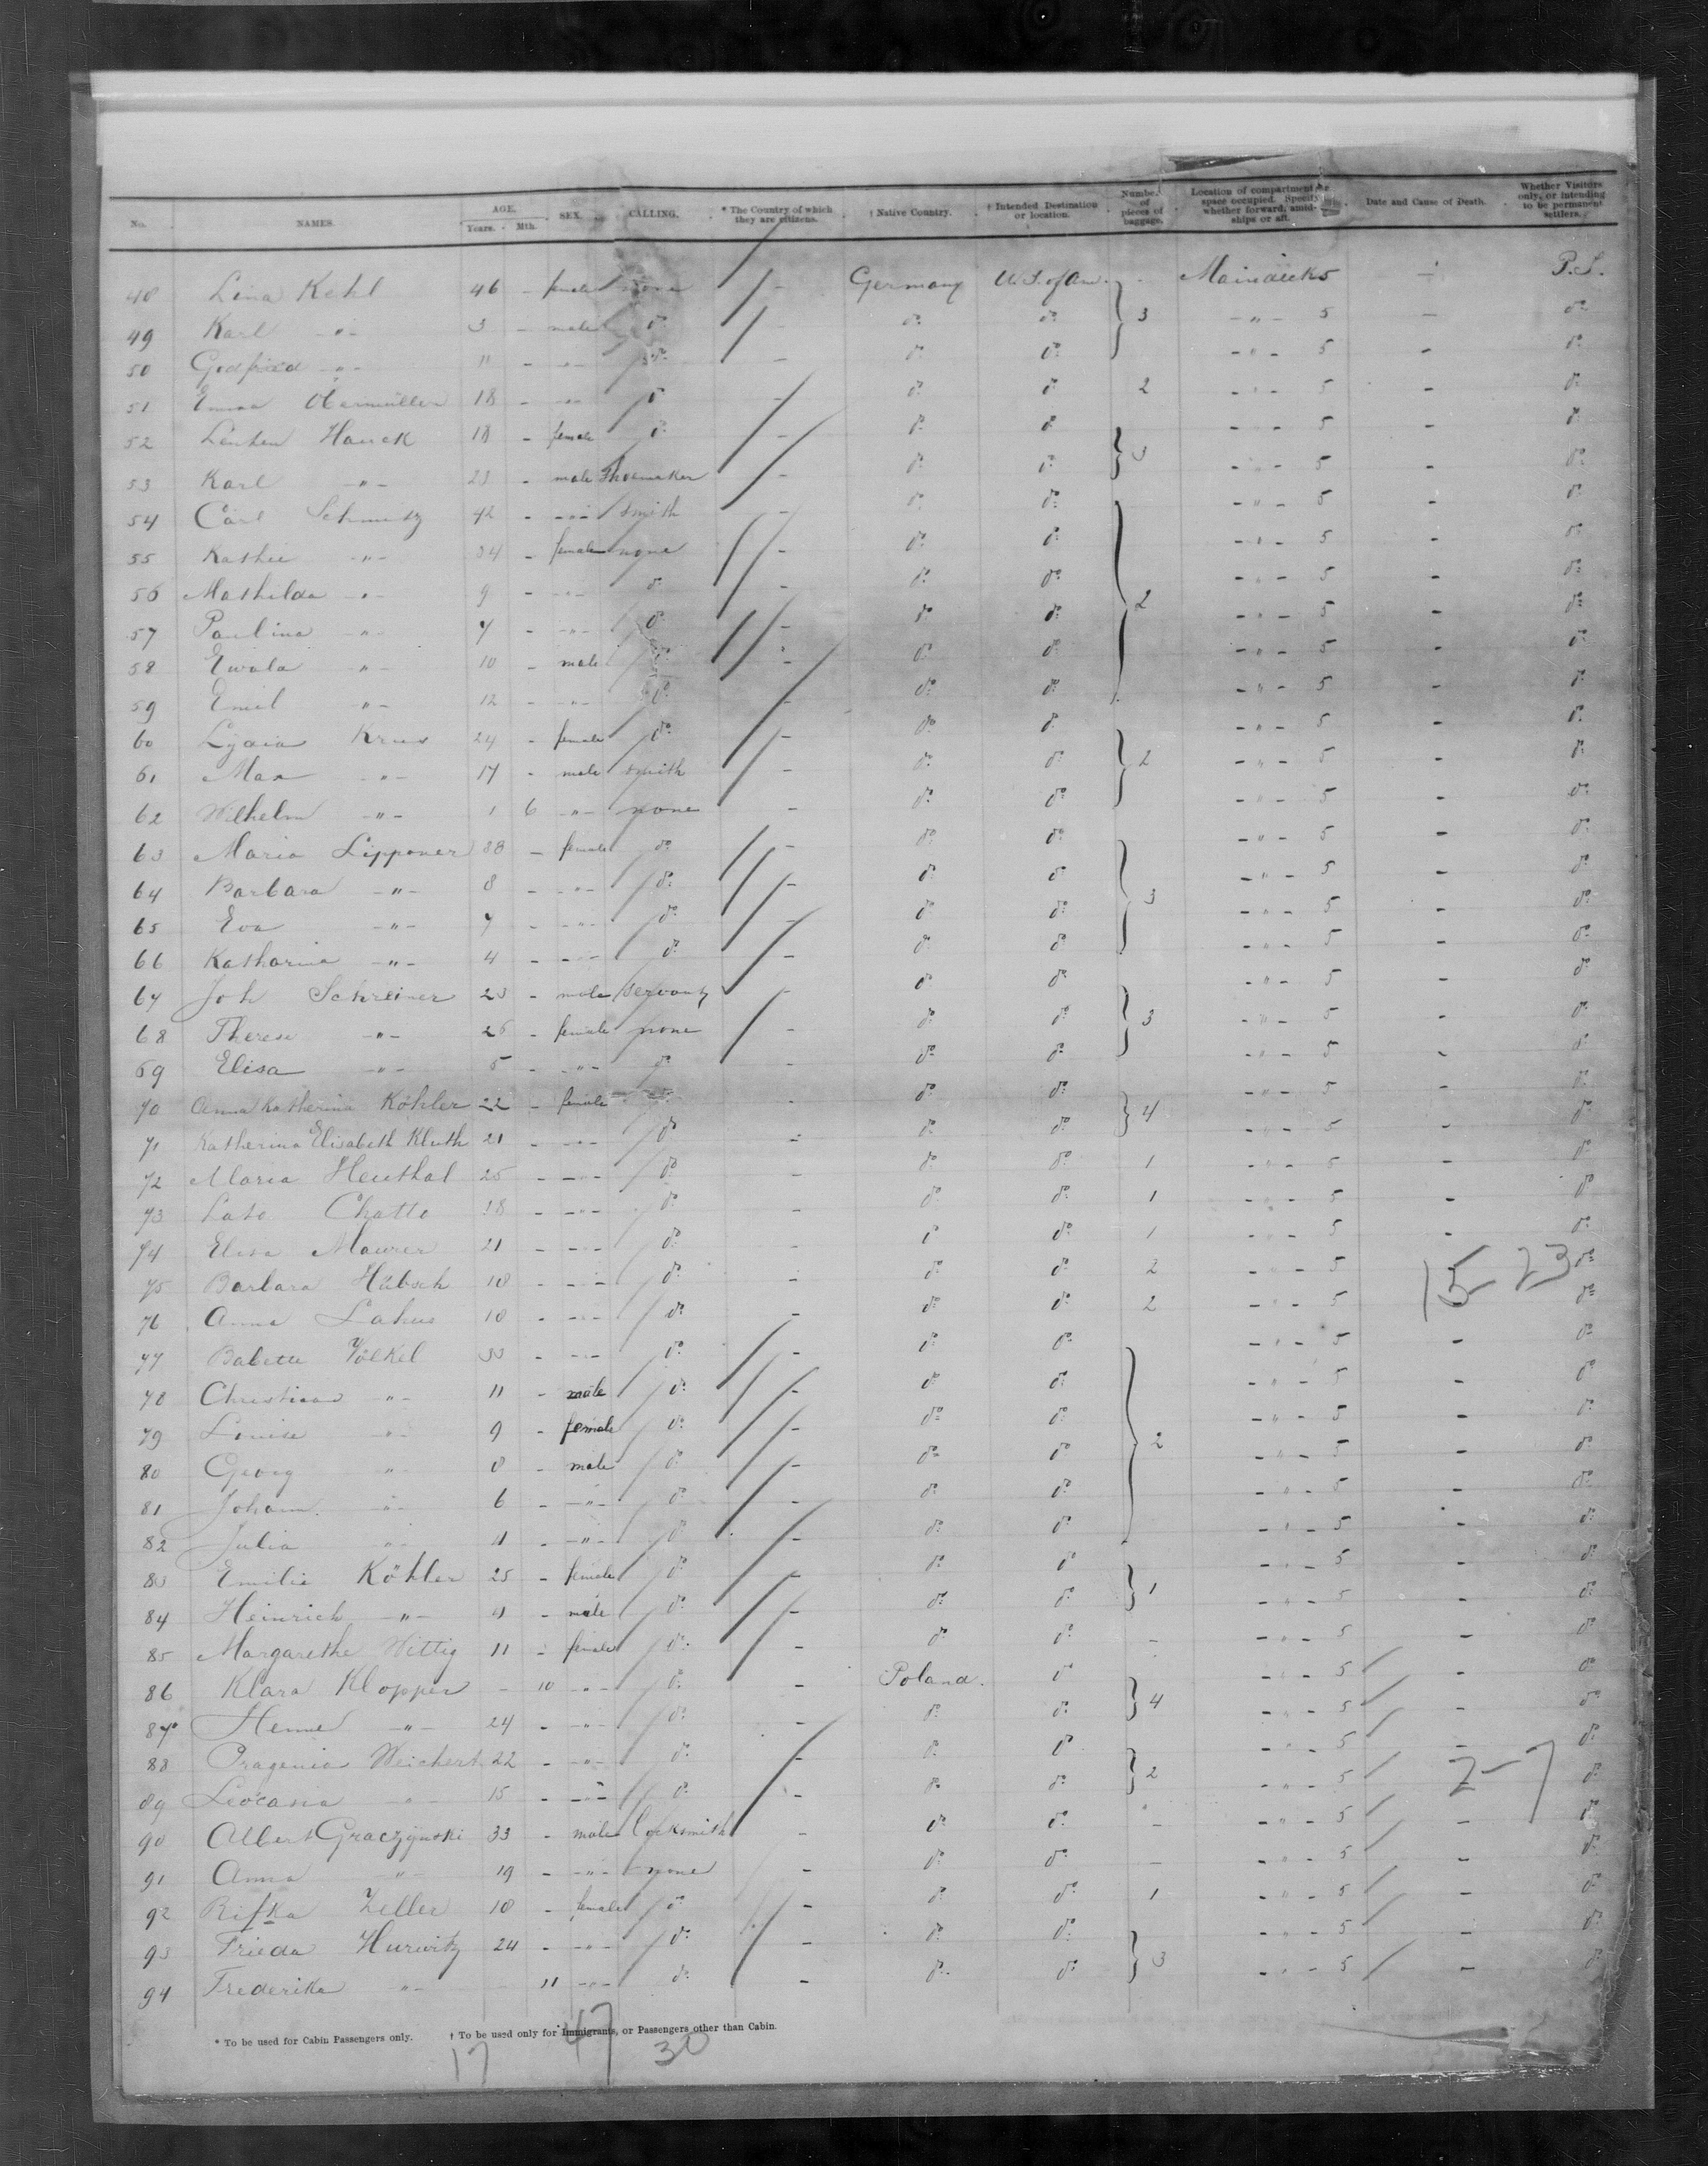 No. NAMES. AGE. Years. Mth. SEX. CALLING. * The Country of which they are citizens. † Native Country. † Intended Destination or location. Number of pieces of baggage. Location of compartment or space occupied. Specify whether forward, amidships or aft. Date and Cause of Death. Whether Visitors only, or intending to be permanent settlers.
48 Lina Kehl 46 - female none - Germany U.S. of Am. - Maindeck 5 - P.S.
49 Karl -"- 3 - male do - do do 3 -"- 5 - do
50 Godfried -"- 11 - -"- do - do do -"- 5 - do
51 Emma Obermüller 18 - -"- do - do do 2 -"- 5 - do
52 Hauck 18 - female do - do do -"- 5 - do
53 Karl -"- 23 - male Shoemaker - do do 3 -"- 5 - do
54 Carl Schmitz 42 - -"- Smith - do do -"- 5 - do
55 Kathie -"- 34 - female none - do do -"- 5 - do
56 Mathilda -"- 9 - -"- do - do do 2 -"- 5 - do
57 Paulina -"- 7 - -"- do - do do -"- 5 - do
58 Ewald -"- 10 - male do - do do -"- 5 - do
59 Emil -"- 12 - -"- do - do do -"- 5 - do
60 Lydia 24 - female do - do do -"- 5 - do
61 Max -"- 17 - male smith - do do 2 -"- 5 - do
62 Wilhelm -"- 1 6 -"- none - do do -"- 5 - do
63 Maria Lipponer 38 - female do - do do -"- 5 - do
64 Barbara -"- 8 - -"- do - do do 3 -"- 5 - do
65 Eva -"- 7 - -"- do - do do -"- 5 - do
66 Katharina -"- 4 - -"- do - do do -"- 5 - do
67 Joh Schreiner 23 - male servant - do do -"- 5 - do
68 Therese -"- 26 - female none - do do 3 -"- 5 - do
69 Elisa -"- 5 - -"- do - do do -"- 5 - do
70 Anna Katherina Köhler 22 - female do - do do -"- 5 - do
71 Katherina Elisabeth Kluth 21 - -"- do - do do 4 -"- 5 - do
72 Maria Heuthal 25 - -"- do - do do 1 -"- 5 - do
73 Chatte 18 - -"- do - do do 1 -"- 5 - do
74 Elisa Maurer 21 - -"- do - do do 1 -"- 5 - do
75 Barbara Hübsch 18 - -"- do - do do 2 -"- 5 15-23 do
76 Anna 18 - -"- do - do do 2 -"- 5 - do
77 Babette Völkel 33 - -"- do - do do -"- 5 - do
78 Christian -"- 11 - male do - do do -"- 5 - do
79 Louise -"- 9 - female do - do do 2 -"- 5 - do
80 Georg -"- 8 - male do - do do -"- 5 - do
81 Johann -"- 6 - -"- do - do do -"- 5 - do
82 Julia -"- 4 - -"- do - do do -"- 5 - do
83 Emilie Köhler 25 - female do - do do -"- 5 - do
84 Heinrich -"- 4 - male do - do do 1 -"- 5 - do
85 Margarethe Wittig 11 - female do - do do - -"- 5 - do
86 Klara Klopper - 10 -"- do - Poland. do -"- 5 - do
87 -"- 24 - -"- do - do do 4 -"- 5 - do
88 Weichert 22 - -"- do - do do -"- 5 - do
89 Leocasia -"- 15 - -"- do - do do 2 -"- 5 2-7 do
90 Albert Graczynski 33 - male locksmith - do do - -"- 5 - do
91 Anna -"- 19 - -"- none - do do - -"- 5 - do
92 Rifka Zeller 18 - female do - do do 1 -"- 5 - do
93 Frieda Hurwitz 24 - -"- do - do do -"- 5 - do
94 Frederika -"- - 11 -"- do - do do 3 -"- 5 - do
* To be used for Cabin Passengers only. † To be used only for Immigrants, or Passengers other than Cabin.
17 47 30